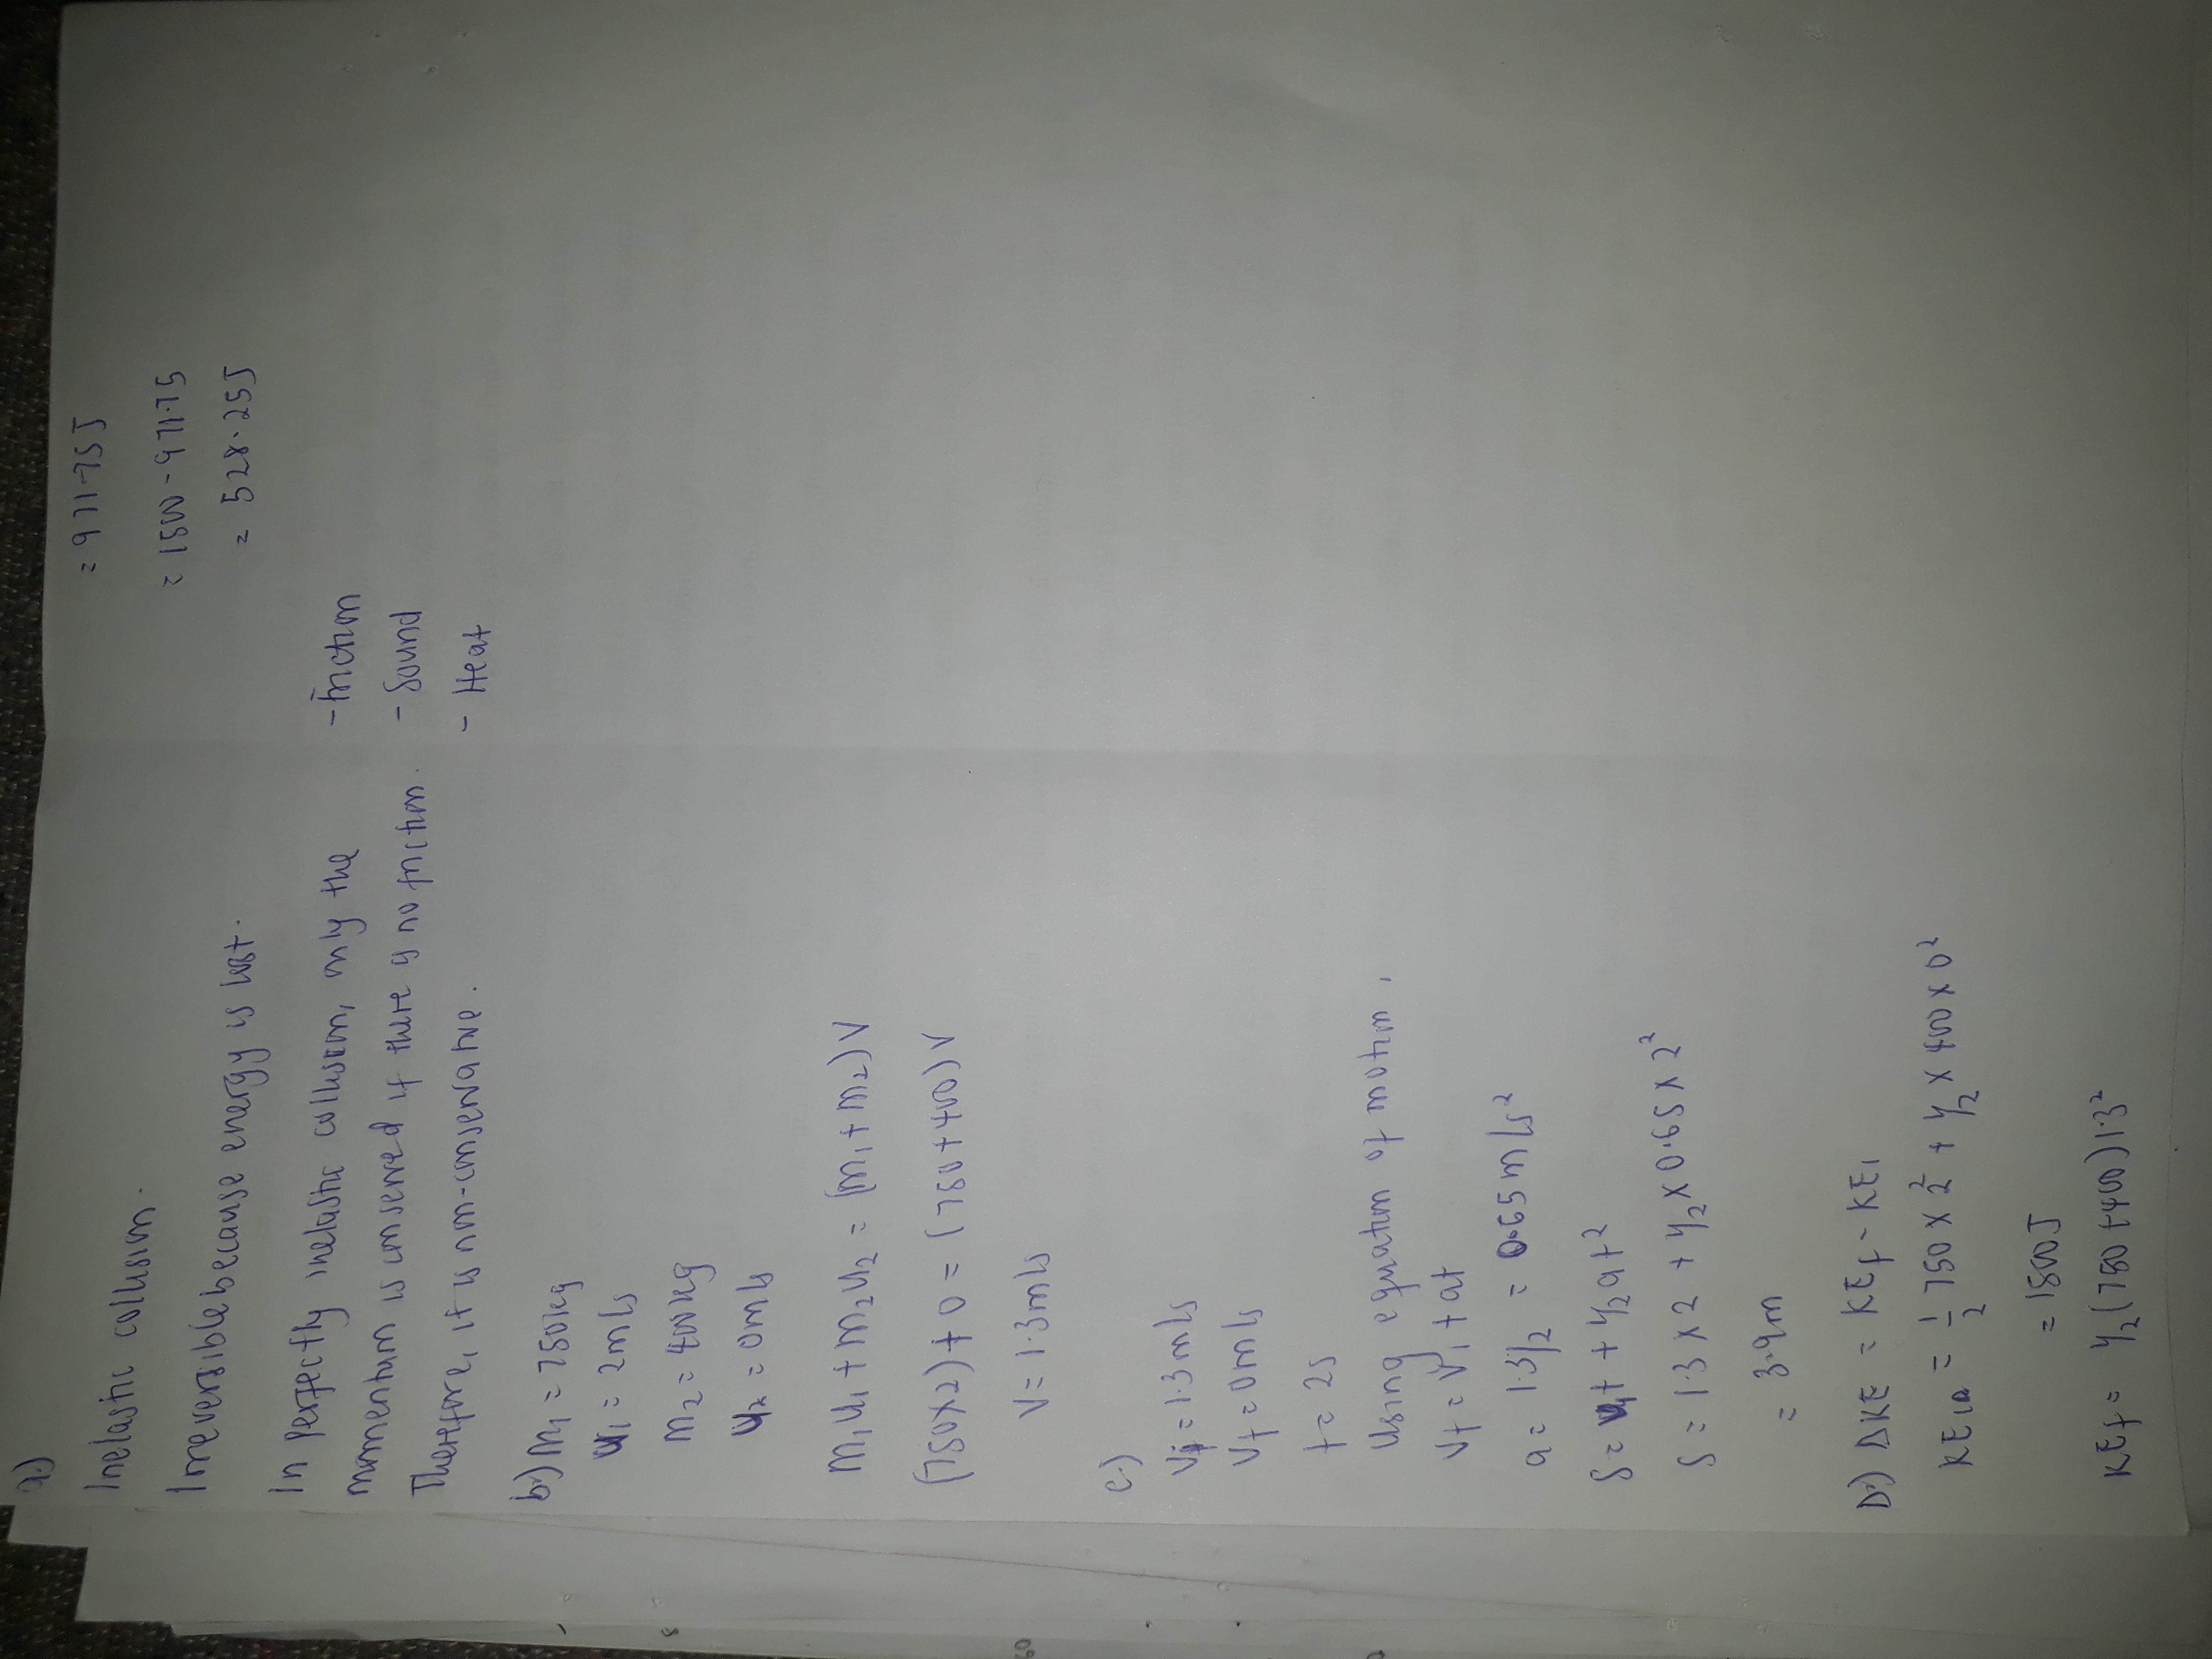 a.)
Inelastic collision.
Irreversible because energy is lost.
In perfectly inelastic collision, only the
momentum is conserved if there is no friction.
Therefore, it is non-conservative.
- Friction
- Sound
- Heat
b.) m₁ = 750kg
u₁ = 2m/s
m₂ = 400kg
u₂ = 0m/s
m₁u₁ + m₂u₂ = (m₁ + m₂)V
(750x2) + 0 = (750+400)V
V = 1.3m/s
c.)
Vi = 1.3m/s
Vf = 0m/s
t = 2s
Using equation of motion,
Vf = Vi + at
a = 1.3/2 = 0.65m/s²
S = ut + 1/2at²
S = 1.3 x 2 + 1/2 x 0.65 x 2²
= 3.9m
D.) ΔKE = KEf - KEi
KEi = 1/2 750 x 2² + 1/2 x 400 x 0²
= 1500J
KEf = 1/2 (750 + 400) 1.3²
= 971.75J
= 1500 - 971.75
= 528.25J